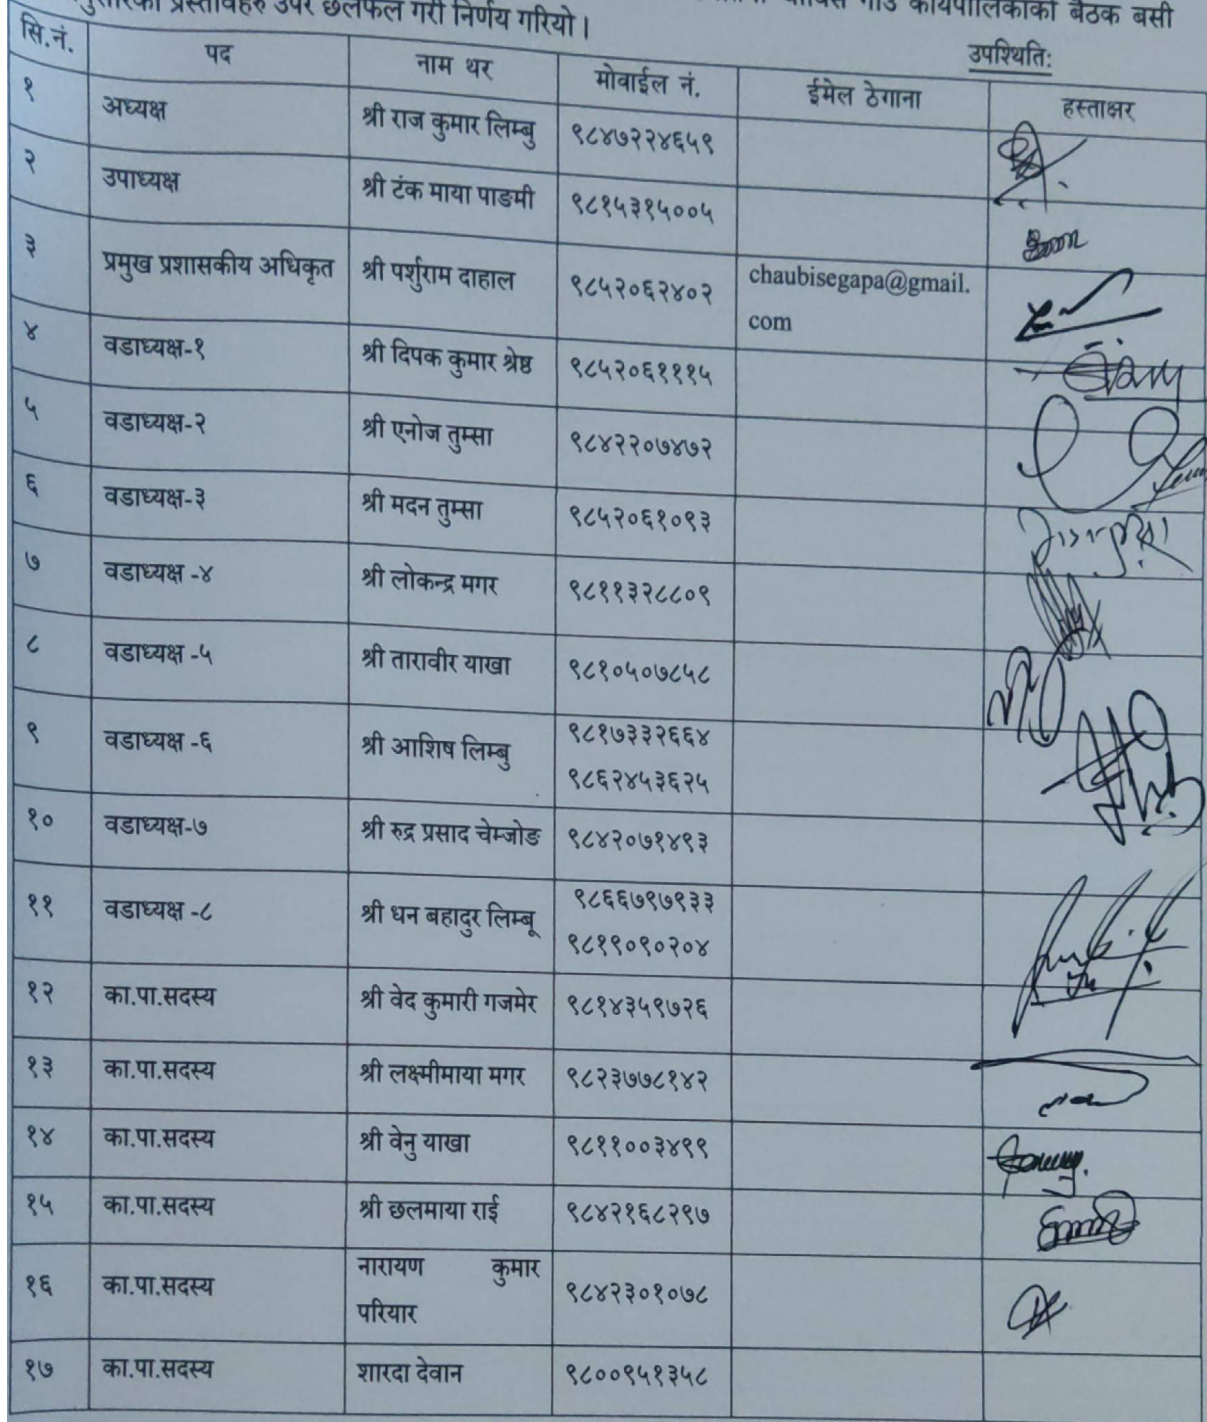 गाउँ कार्यपालिकाको बैठक बसी
प्रस्तावहरु उपर छलफल गरी निर्णय गरियो।
उपश्थितिः
सि.नं. पद नाम थर मोवाईल नं. ईमेल ठेगाना हस्ताक्षर
१ अध्यक्ष श्री राज कुमार लिम्बु ९८४७२२४६५९
२ उपाध्यक्ष श्री टंक माया पाङमी ९८१५३१५००५
३ प्रमुख प्रशासकीय अधिकृत श्री पर्शुराम दाहाल ९८५२०६२४०२ chaubisegapa@gmail.
com
४ वडाध्यक्ष-१ श्री दिपक कुमार श्रेष्ठ ९८५२०६१११५
५ वडाध्यक्ष-२ श्री एनोज तुम्सा ९८४२२०७४७२
६ वडाध्यक्ष-३ श्री मदन तुम्सा ९८५२०६१०९३
७ वडाध्यक्ष -४ श्री लोकन्द्र मगर ९८११३२८८०९
८ वडाध्यक्ष -५ श्री तारावीर याखा ९८१०५०७८५८
९ वडाध्यक्ष -६ श्री आशिष लिम्बु ९८१७३३२६६४
९८६२४५३६२५
१० वडाध्यक्ष-७ श्री रुद्र प्रसाद चेम्जोङ ९८४२०७१४९३
११ वडाध्यक्ष -८ श्री धन बहादुर लिम्बू ९८६६७९७९३३
९८१९०९०२०४
१२ का.पा.सदस्य श्री वेद कुमारी गजमेर ९८१४३५९७२६
१३ का.पा.सदस्य श्री लक्ष्मीमाया मगर ९८२३७७८१४२
१४ का.पा.सदस्य श्री वेनु याखा ९८११००३४९९
१५ का.पा.सदस्य श्री छलमाया राई ९८४२१६८२९७
१६ का.पा.सदस्य नारायण कुमार
परियार ९८४२३०१०७८
१७ का.पा.सदस्य शारदा देवान ९८००९५१३५८